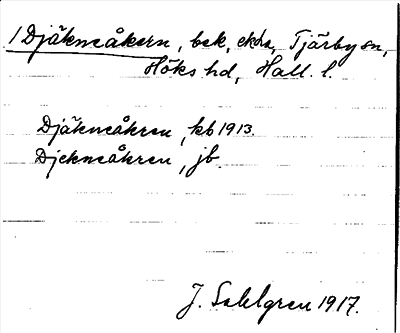 1 Djäkneåkern, bek, ekon, Tjärby sn,
Höks hd, Hall. l.
Djäkneåkren, kb 1913.
Djekneåkren, jb
J. Sahlgren 1917.